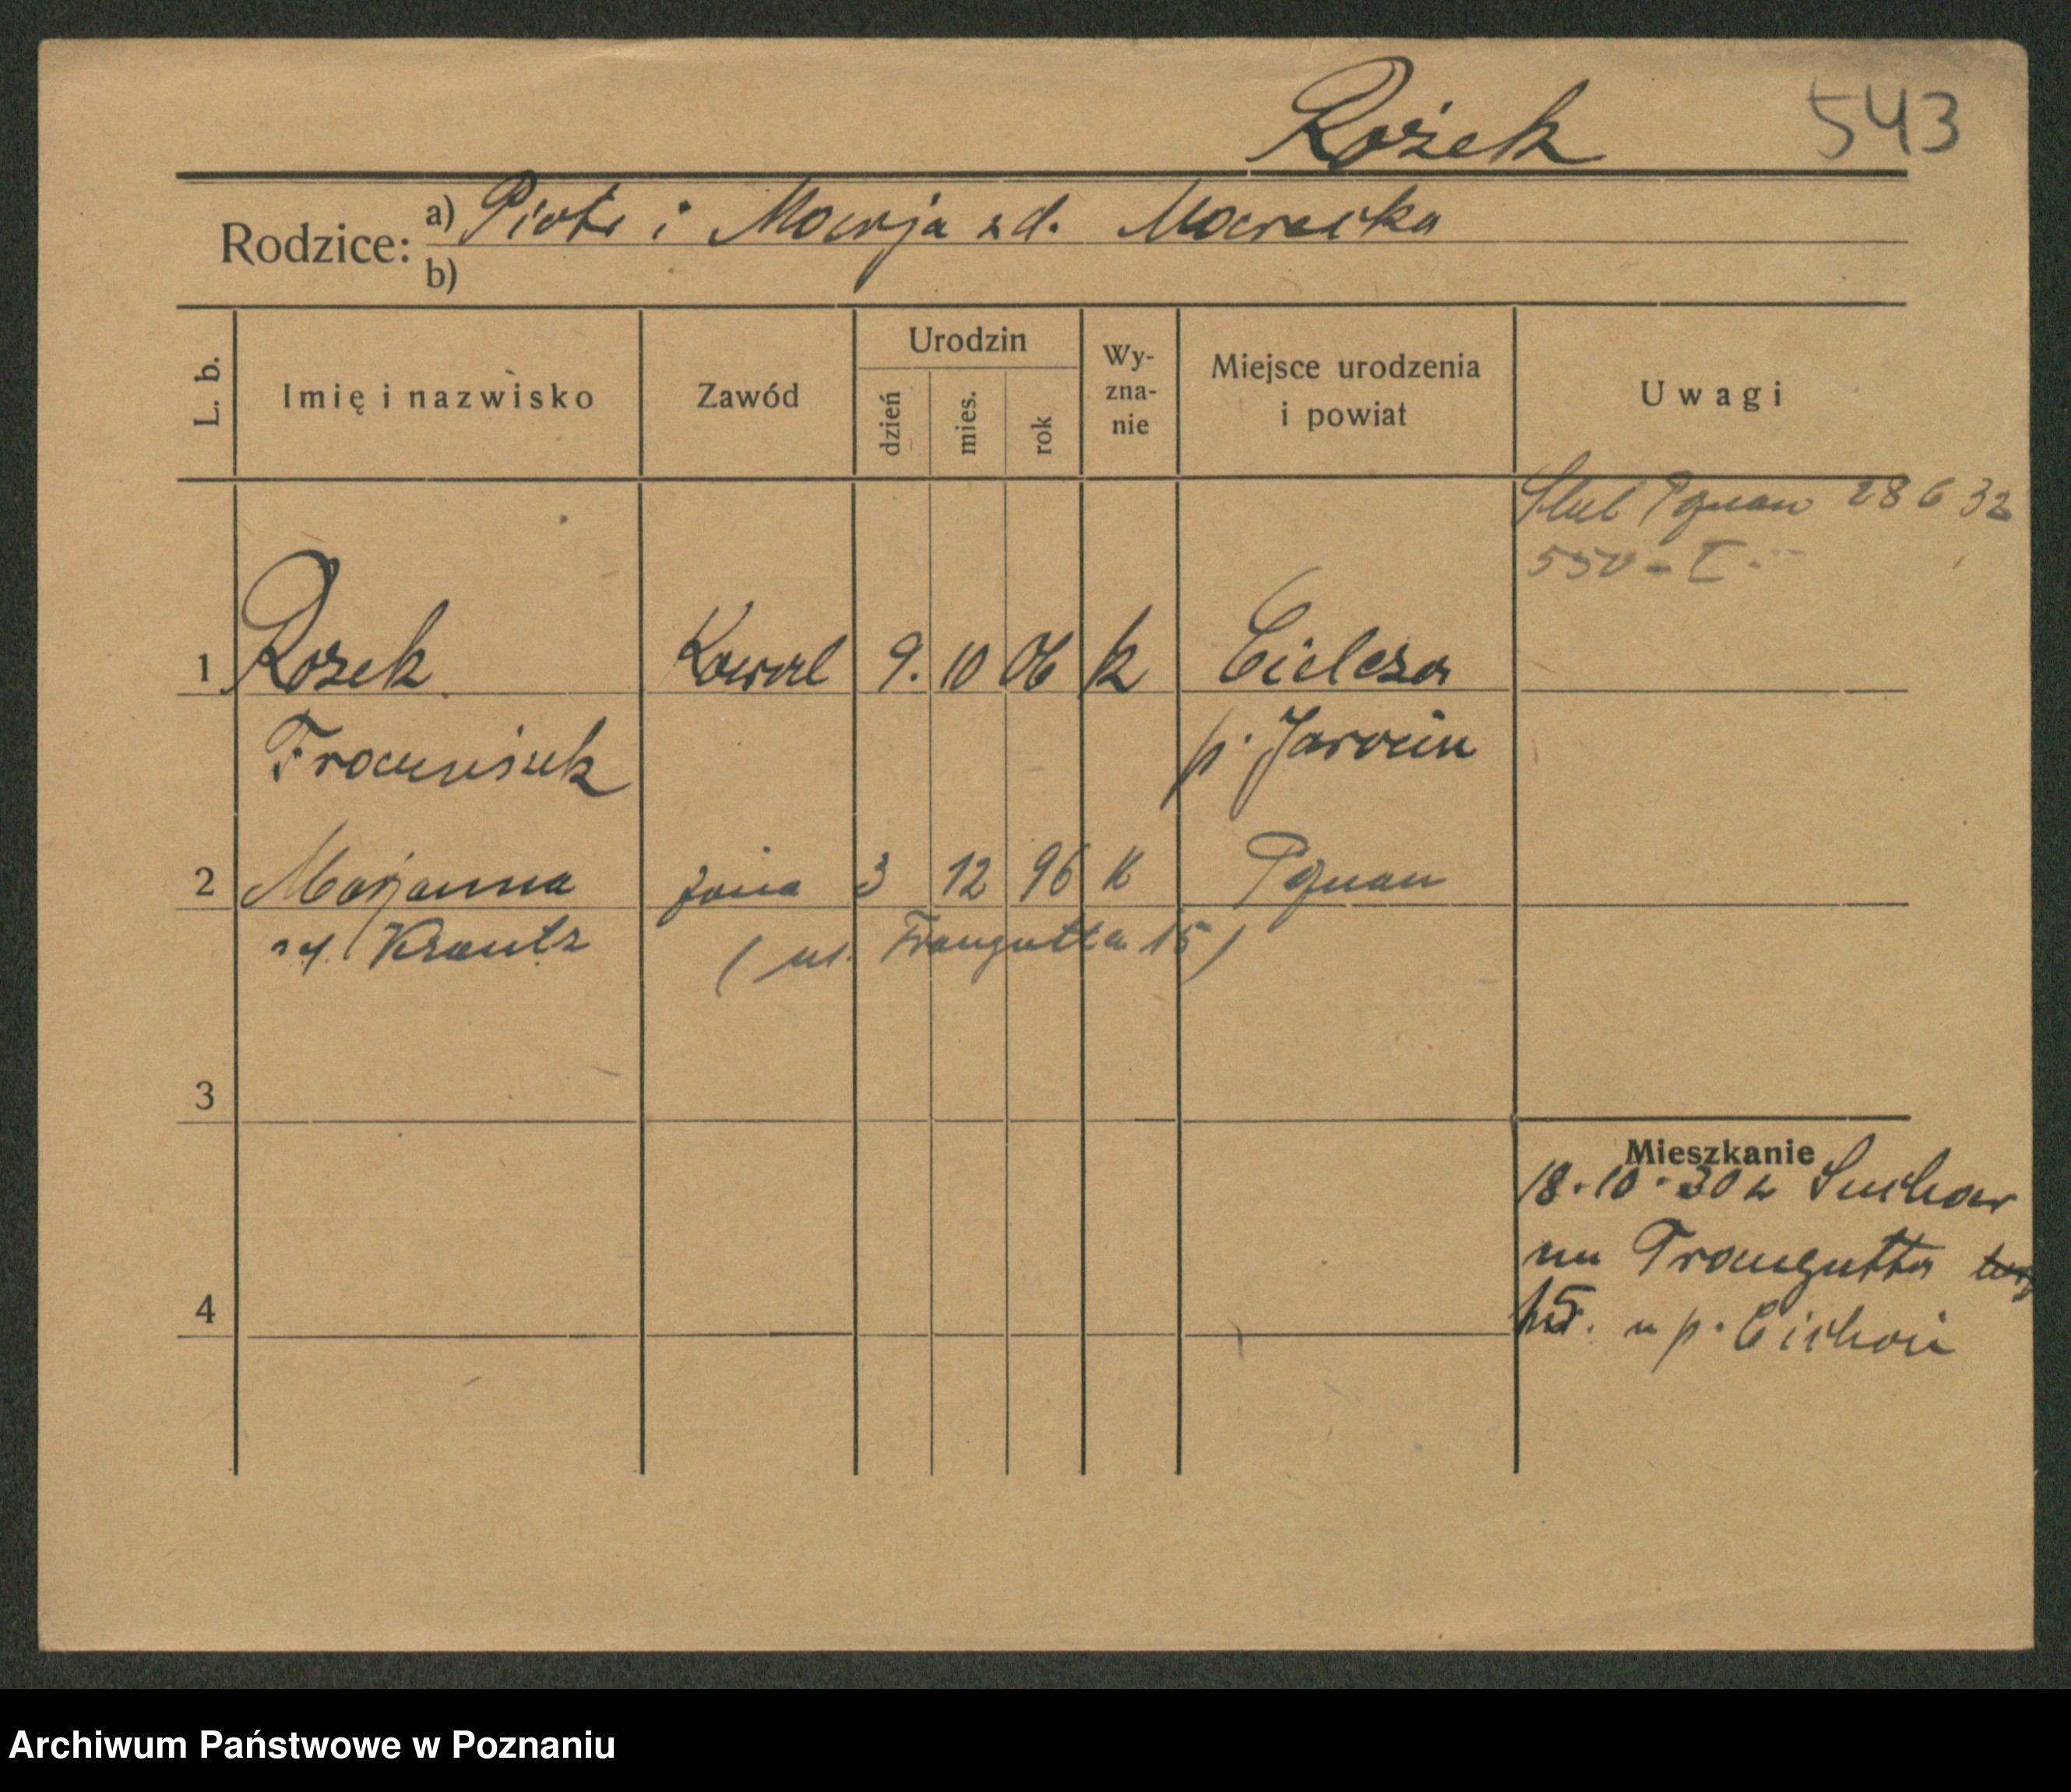 Rożek 543
Rodzice: a) Piotr i Marja zd. Marecka
b)
L. b. Imię i nazwisko Zawód Urodzin dzień mies. rok Wy-zna-nie Miejsce urodzenia i powiat Uwagi
Ślub Poznań 28 6 32
550 - I.
1 Rożek Kowal 9. 10 06 k Cielcza
Franciszek p. Jarocin
2 Marjanna żona 3 12 96 K Poznań
zd. Krantz (ul. Traugutta 15)
3
Mieszkanie
18.10.30 z Suchar
na Traugutta
15. u p. Cichoń
4
Archiwum Państwowe w Poznaniu